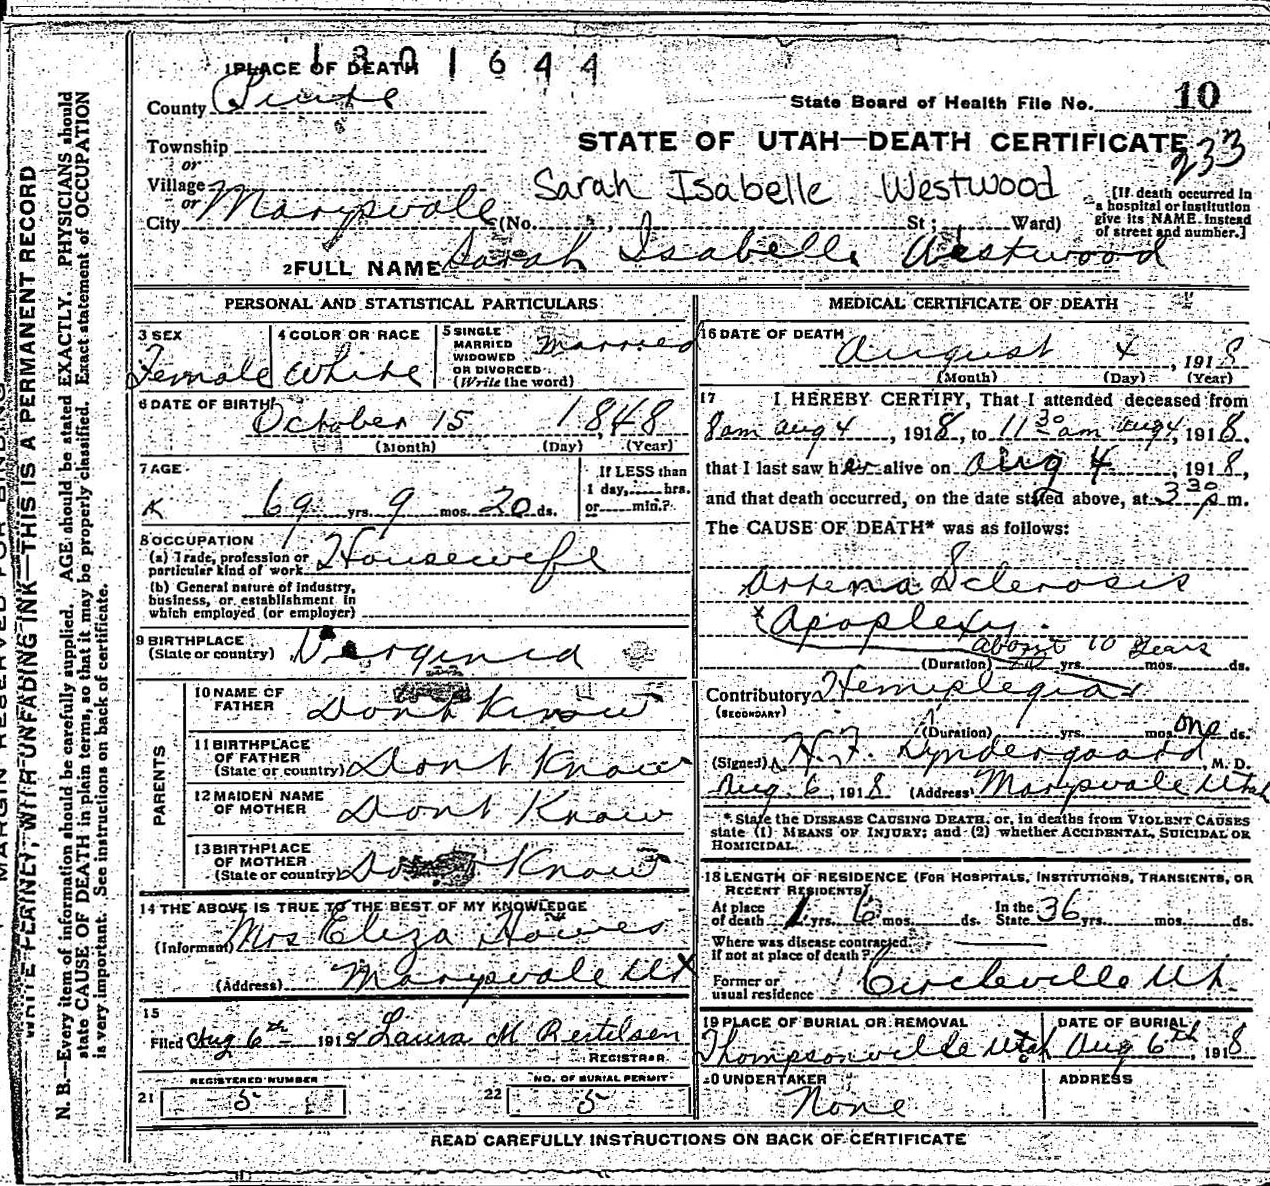 1301644
1 PLACE OF DEATH
County Piute
State Board of Health File No. 10
STATE OF UTAH—DEATH CERTIFICATE
233
Township
or
Village
or
City Marysvale (No. , St; Ward)
Sarah Isabelle Westwood
[If death occurred in
a hospital or institution
give its NAME instead
of street and number.]
2 FULL NAME Sarah Isabelle Westwood
PERSONAL AND STATISTICAL PARTICULARS
3 SEX
Female
4 COLOR OR RACE
White
5 SINGLE
MARRIED
WIDOWED
OR DIVORCED
(Write the word)
Married
6 DATE OF BIRTH
October 15 1848
(Month) (Day) (Year)
7 AGE
69 yrs. 9 mos. 20 ds.
If LESS than
1 day, hrs.
or min.?
8 OCCUPATION
(a) Trade, profession or
particular kind of work Housewife
(b) General nature of industry,
business, or establishment in
which employed (or employer)
9 BIRTHPLACE
(State or country) Verginia
PARENTS
10 NAME OF
FATHER Dont Know
11 BIRTHPLACE
OF FATHER
(State or country) Dont Know
12 MAIDEN NAME
OF MOTHER Dont Know
13 BIRTHPLACE
OF MOTHER
(State or country) Do Know
14 THE ABOVE IS TRUE TO THE BEST OF MY KNOWLEDGE
(Informant) Mrs Eliza Howes
(Address) Marysvale Ut
15
Filed Aug 6th 1918 Laura M Bertelsen
REGISTRAR
21 REGISTERED NUMBER
5
22 NO. OF BURIAL PERMIT
5
MEDICAL CERTIFICATE OF DEATH
16 DATE OF DEATH
August 4, 1918
(Month) (Day) (Year)
17 I HEREBY CERTIFY, That I attended deceased from
8am Aug 4, 1918, to 11 30 am Aug 4, 1918,
that I last saw her alive on Aug 4, 1918,
and that death occurred, on the date stated above, at 3 30 p m.
The CAUSE OF DEATH* was as follows:
Arterna Sclerosis
Apoplexy.
about 10 years
(Duration) yrs. mos. ds.
Contributory Hemiplegia
(SECONDARY)
(Duration) yrs. mos. one ds.
(Signed) N. F. Lyndergaard, M. D.
Aug. 6, 1918 (Address) Marysvale Utah
*State the DISEASE CAUSING DEATH, or, in deaths from VIOLENT CAUSES
state (1) MEANS OF INJURY; and (2) whether ACCIDENTAL, SUICIDAL OR
HOMICIDAL.
18 LENGTH OF RESIDENCE (FOR HOSPITALS, INSTITUTIONS, TRANSIENTS, OR
RECENT RESIDENTS)
At place
of death 1 yrs. 6 mos. ds. In the
State 36 yrs. mos. ds.
Where was disease contracted
if not at place of death?
Former or
usual residence Circleville Ut.
19 PLACE OF BURIAL OR REMOVAL
Thompsonville Utah
DATE OF BURIAL
Aug 6th, 1918
20 UNDERTAKER
None
ADDRESS
READ CAREFULLY INSTRUCTIONS ON BACK OF CERTIFICATE
MARGIN RESERVED FOR BINDING
WRITE PLAINLY, WITH UNFADING INK—THIS IS A PERMANENT RECORD
N. B.—Every item of information should be carefully supplied. AGE should be stated EXACTLY. PHYSICIANS should
state CAUSE OF DEATH in plain terms, so that it may be properly classified. Exact statement of OCCUPATION
is very important. See instructions on back of certificate.